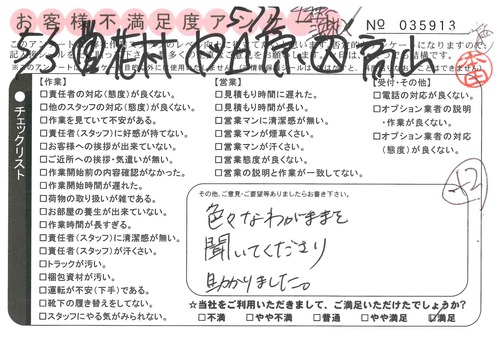 お客様不満足度アンケート
№ 035913
チェックリスト
【作業】
□責任者の対応(態度)が良くない。
□他のスタッフの対応(態度)が良くない。
□作業を見ていて不安がある。
□責任者(スタッフ)に好感が持てない。
□お客様への挨拶が出来ていない。
□ご近所への挨拶・気遣いが無い。
□作業開始前の内容確認がなかった。
□作業開始時間が遅れた。
□荷物の取り扱いが雑である。
□お部屋の養生が出来ていない。
□作業時間が長すぎる。
□責任者(スタッフ)に清潔感が無い。
□責任者(スタッフ)が汗くさい。
□トラックが汚い。
□梱包資材が汚い。
□運転が不安(下手)である。
□靴下の履き替えをしてない。
□スタッフにやる気がみられない。
【営業】
□見積もり時間に遅れた。
□見積もり時間が長い。
□営業マンに清潔感が無い。
□営業マンが煙草くさい。
□営業マンが汗くさい。
□営業態度が良くない。
□営業の説明と作業が一致してない。
【受付・その他】
□電話の対応が良くない。
□オプション業者の説明
・作業が良くない。
□オプション業者の対応
(態度)が良くない。
その他、ご意見・ご要望等ありましたらお書き下さい。
色々なわがままを
聞いてくださり
助かりました。
☆当社をご利用いただきまして、ご満足いただけたでしょうか?
□不満 □やや不満 □普通 □やや満足 ☑満足